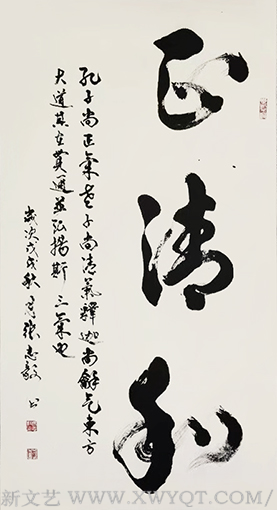 正清和
孔子尚正氣老子尚清氣釋迦尚龢氣東方
大道其在貫通並弘揚斯三氣也
歲次戊戌秋月張志毅書
新文艺/WWW.XWYQT.COM/